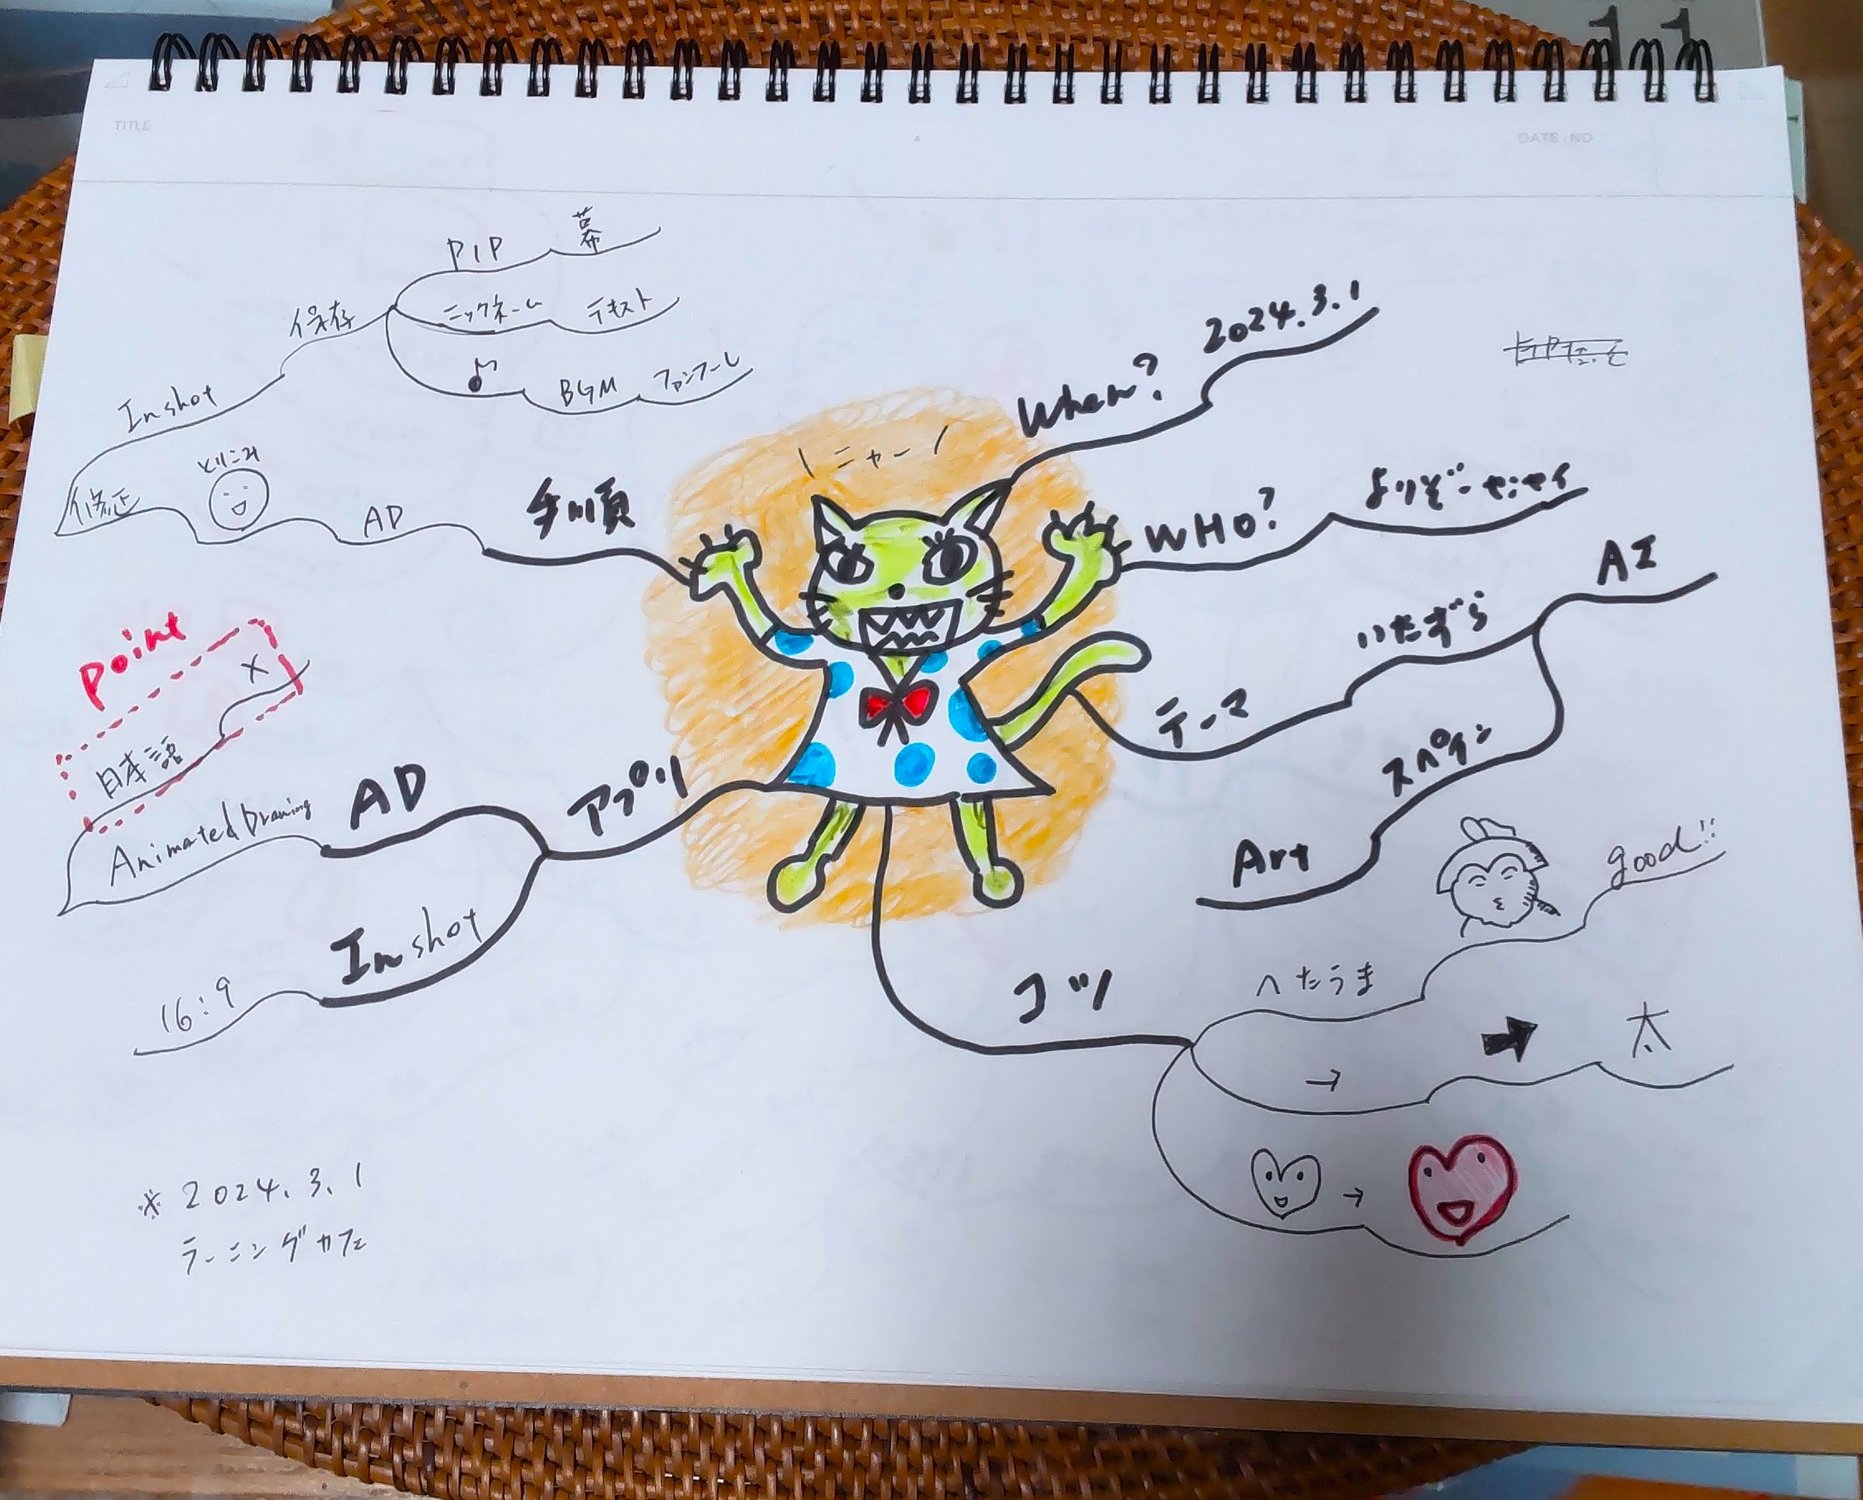 TITLE
DATE / NO
PIP
幕
保存
ニックネーム
テキスト
♪
BGM
ファンフーレ
Inshot
修正
とりこみ
AD
手順
ニャー
When?
2024.3.1
WHO?
よりぞーセンセイ
テーマ
いたずら
AI
スペイン
Art
point
日本語
×
Animated Drawing
AD
アプリ
Inshot
16:9
コツ
へたうま
good!!
→
➡
太
→
※ 2024.3.1
ラーニングカフェ